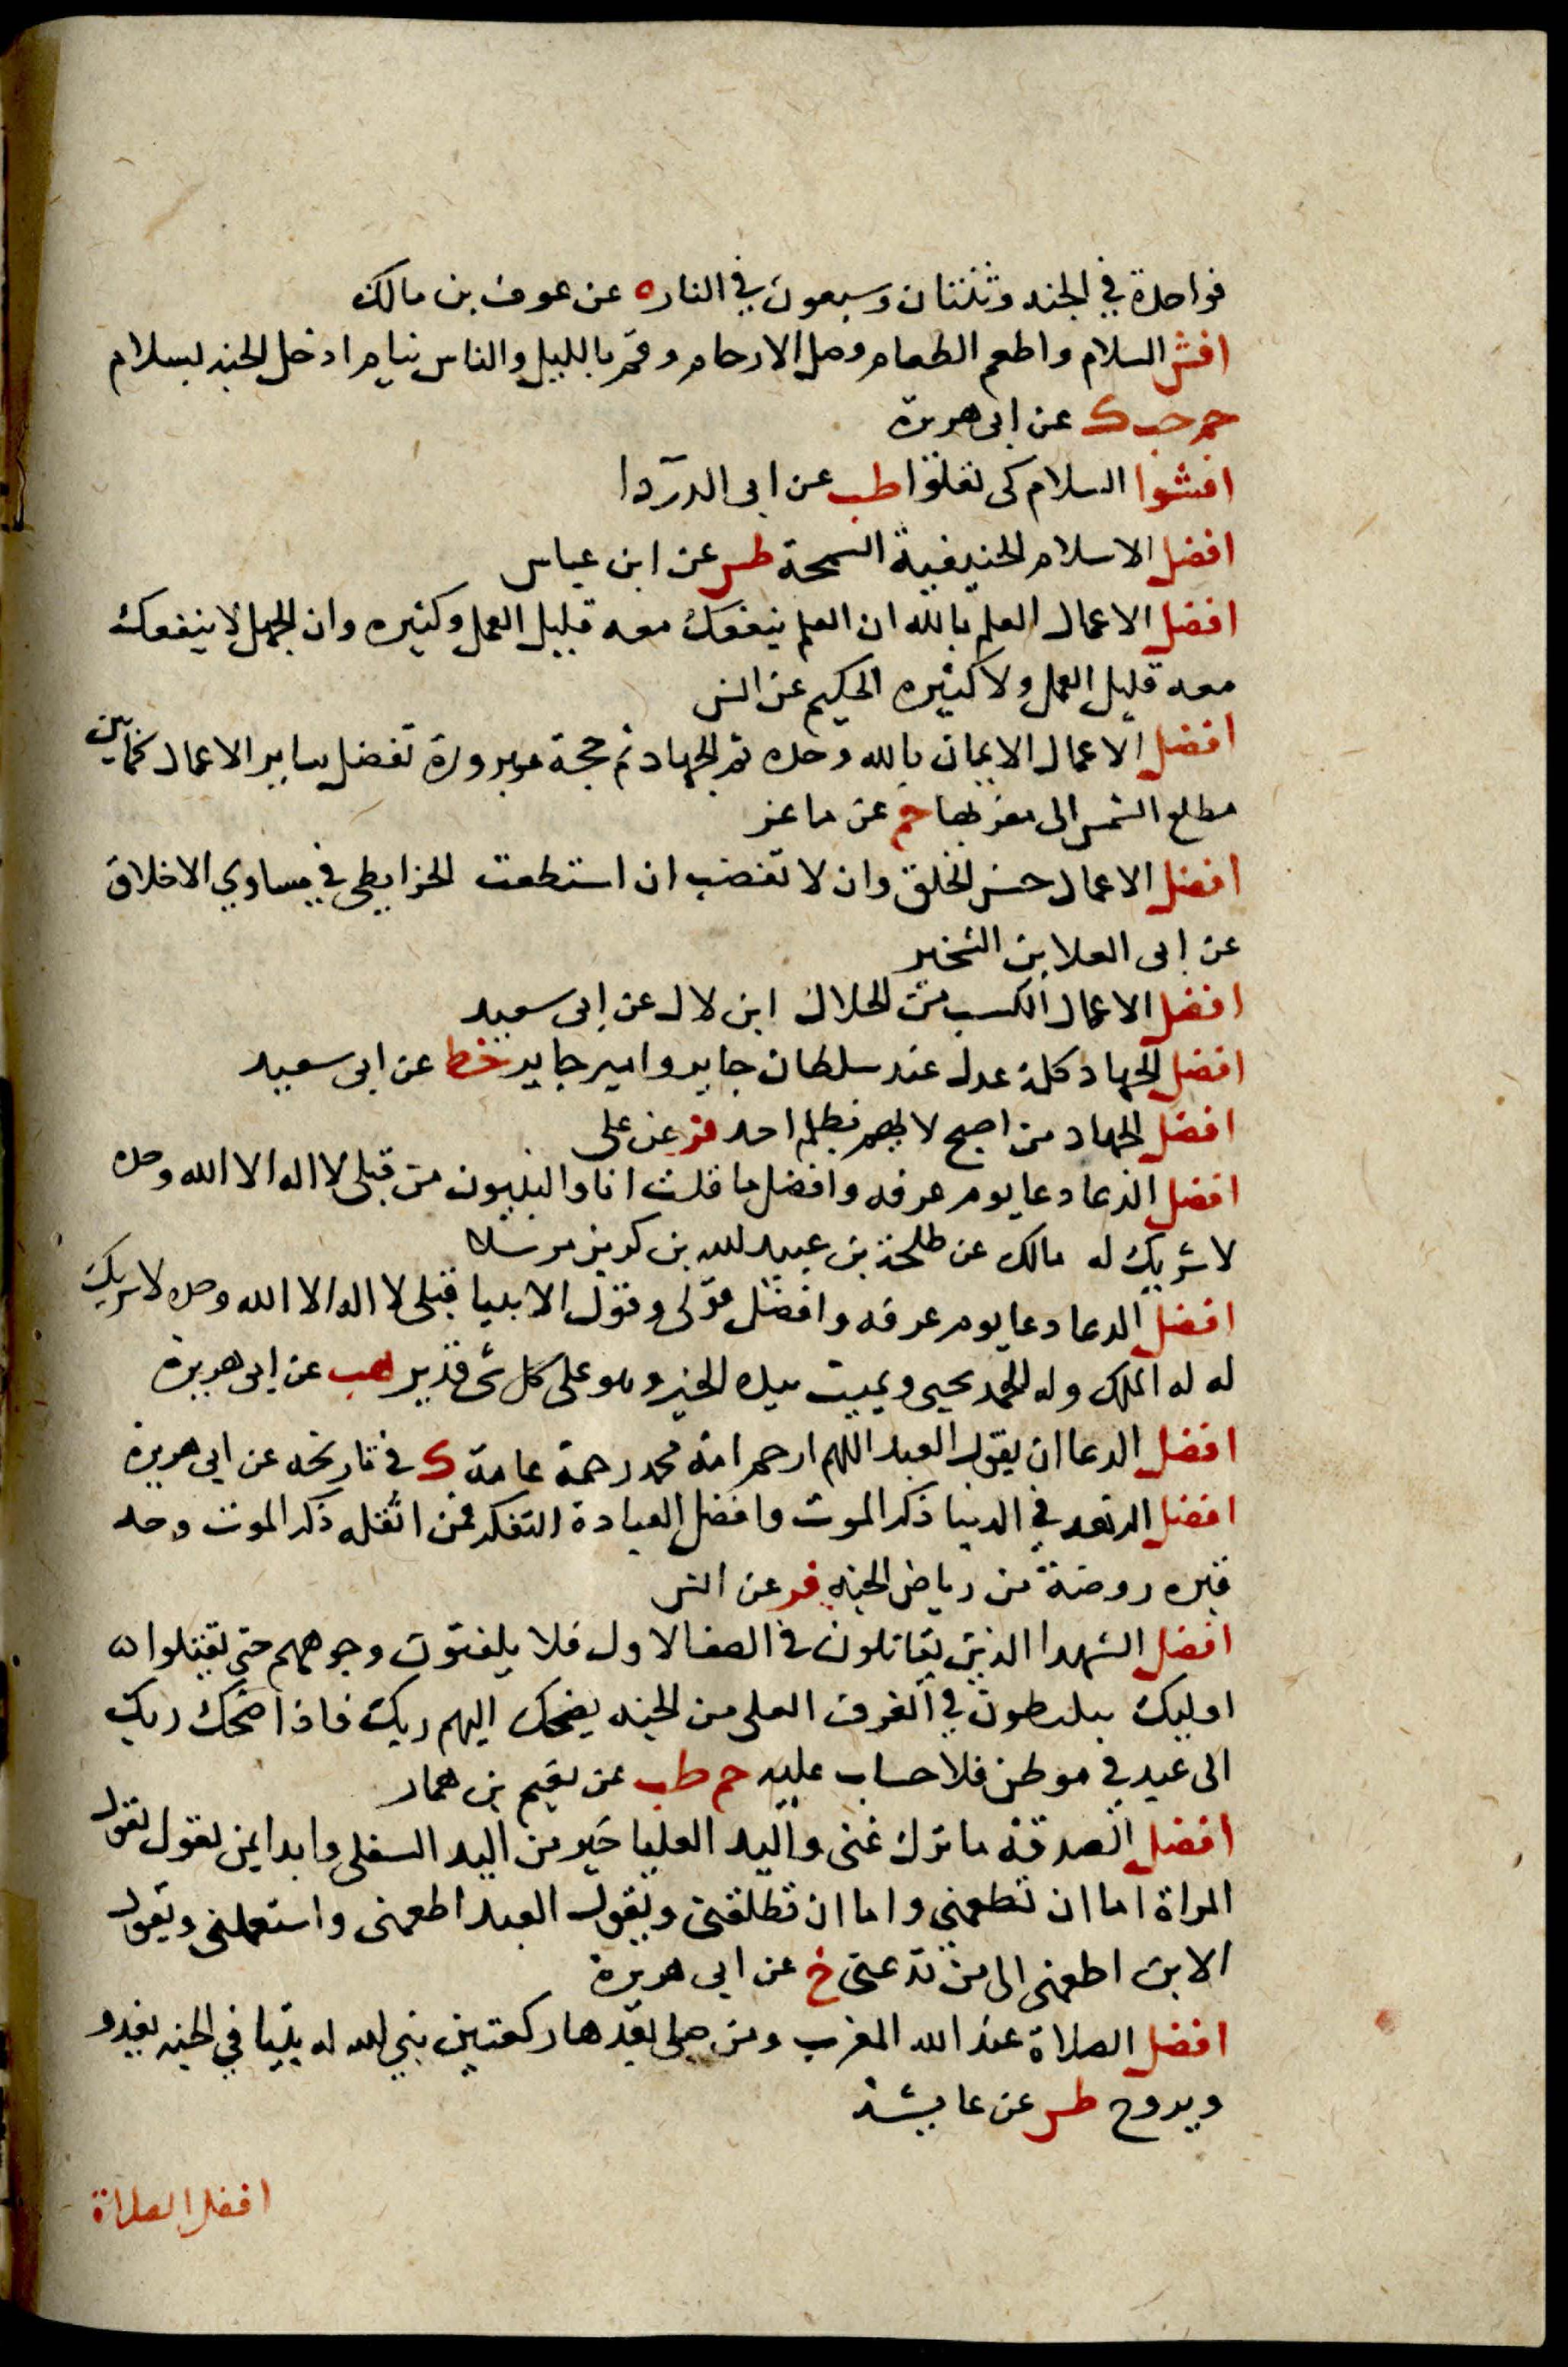 فواحدة في الجنه وثنتان وسبعون في النار ه عن عوف بن مالك
افش السلام واطعم الطعام وصل الارحام وقم بالليل والناس نيام ادخل الجنه بسلام
حم حب ك عن ابى هريرة
افشوا السلام كى تعلوا طب عن ابى الدردا
افضل الاسلام الحنيفية السمحة طس عن ابن عباس
افضل الاعمال العلم بالله ان العلم ينفعك معه قليل العمل وكثيره وان الجهل لا ينفعك
معه قليل العمل ولا كثيره الحكيم عن انس
افضل الاعمال الايمان بالله وحده ثم الجهاد ثم حجة مبرورة تفضل ساير الاعمال كما بين
مطلع الشمس الى مغربها حم عن ماعز
افضل الاعمال حسن الخلق وان لا تغضب ان استطعت الخرايطى في مساوي الاخلاق
عن ابى العلا بن الشخير
افضل الاعمال الكسب من الحلال ابن لال عن ابى سعيد
افضل الجهاد كلمة عدل عند سلطان جاير وامير جاير خط عن ابى سعيد
افضل الجهاد من اصبح لا يهم بظلم احد فر عن على
افضل الدعا دعا يوم عرفه وافضل ما قلت انا والنبيون من قبلى لا اله الا الله وحده
لا شريك له مالك عن طلحة بن عبيد الله بن كريز مرسلا
افضل الدعا دعا يوم عرفه وافضل قولى وقول الانبيا قبلى لا اله الا الله وحده لا شريك
له له الملك وله الحمد يحيى ويميت بيده الخير وهو على كل شى قدير هب عن ابى هريرة
افضل الدعا ان يقول العبد اللهم ارحم امة محمد رحمة عامة ك في تاريخه عن ابى هريرة
افضل الزهد في الدنيا ذكر الموت وافضل العبادة التفكر فمن اثقله ذكر الموت وجد
قبره روضة من رياض الجنه فر عن انس
افضل الشهدا الذين يقاتلون في الصف الاول فلا يلفتون وجوههم حتى يقتلوا ه
اوليك يتلبطون في الغرف العلى من الجنه يضحك اليهم ربك فاذا ضحك ربك
الى عبد في موطن فلا حساب عليه حم طب عن نعيم بن همار
افضل الصدقة ما ترك غنى واليد العليا خير من اليد السفلى وابدا بمن تعول تقول
المراة اما ان تطعمني واما ان تطلقنى ويقول العبد اطعمنى واستعملنى ويقول
الابن اطعمنى الى من تدعنى خ عن ابى هريرة
افضل الصلاة عند الله المغرب ومن صلى بعدها ركعتين بنى الله له بيتا في الجنه يغدو
ويروح طس عن عايشة
افضل الصلاة